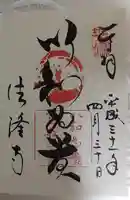 奉拝
平成三十一年
四月三十日
以和為貴
法隆寺